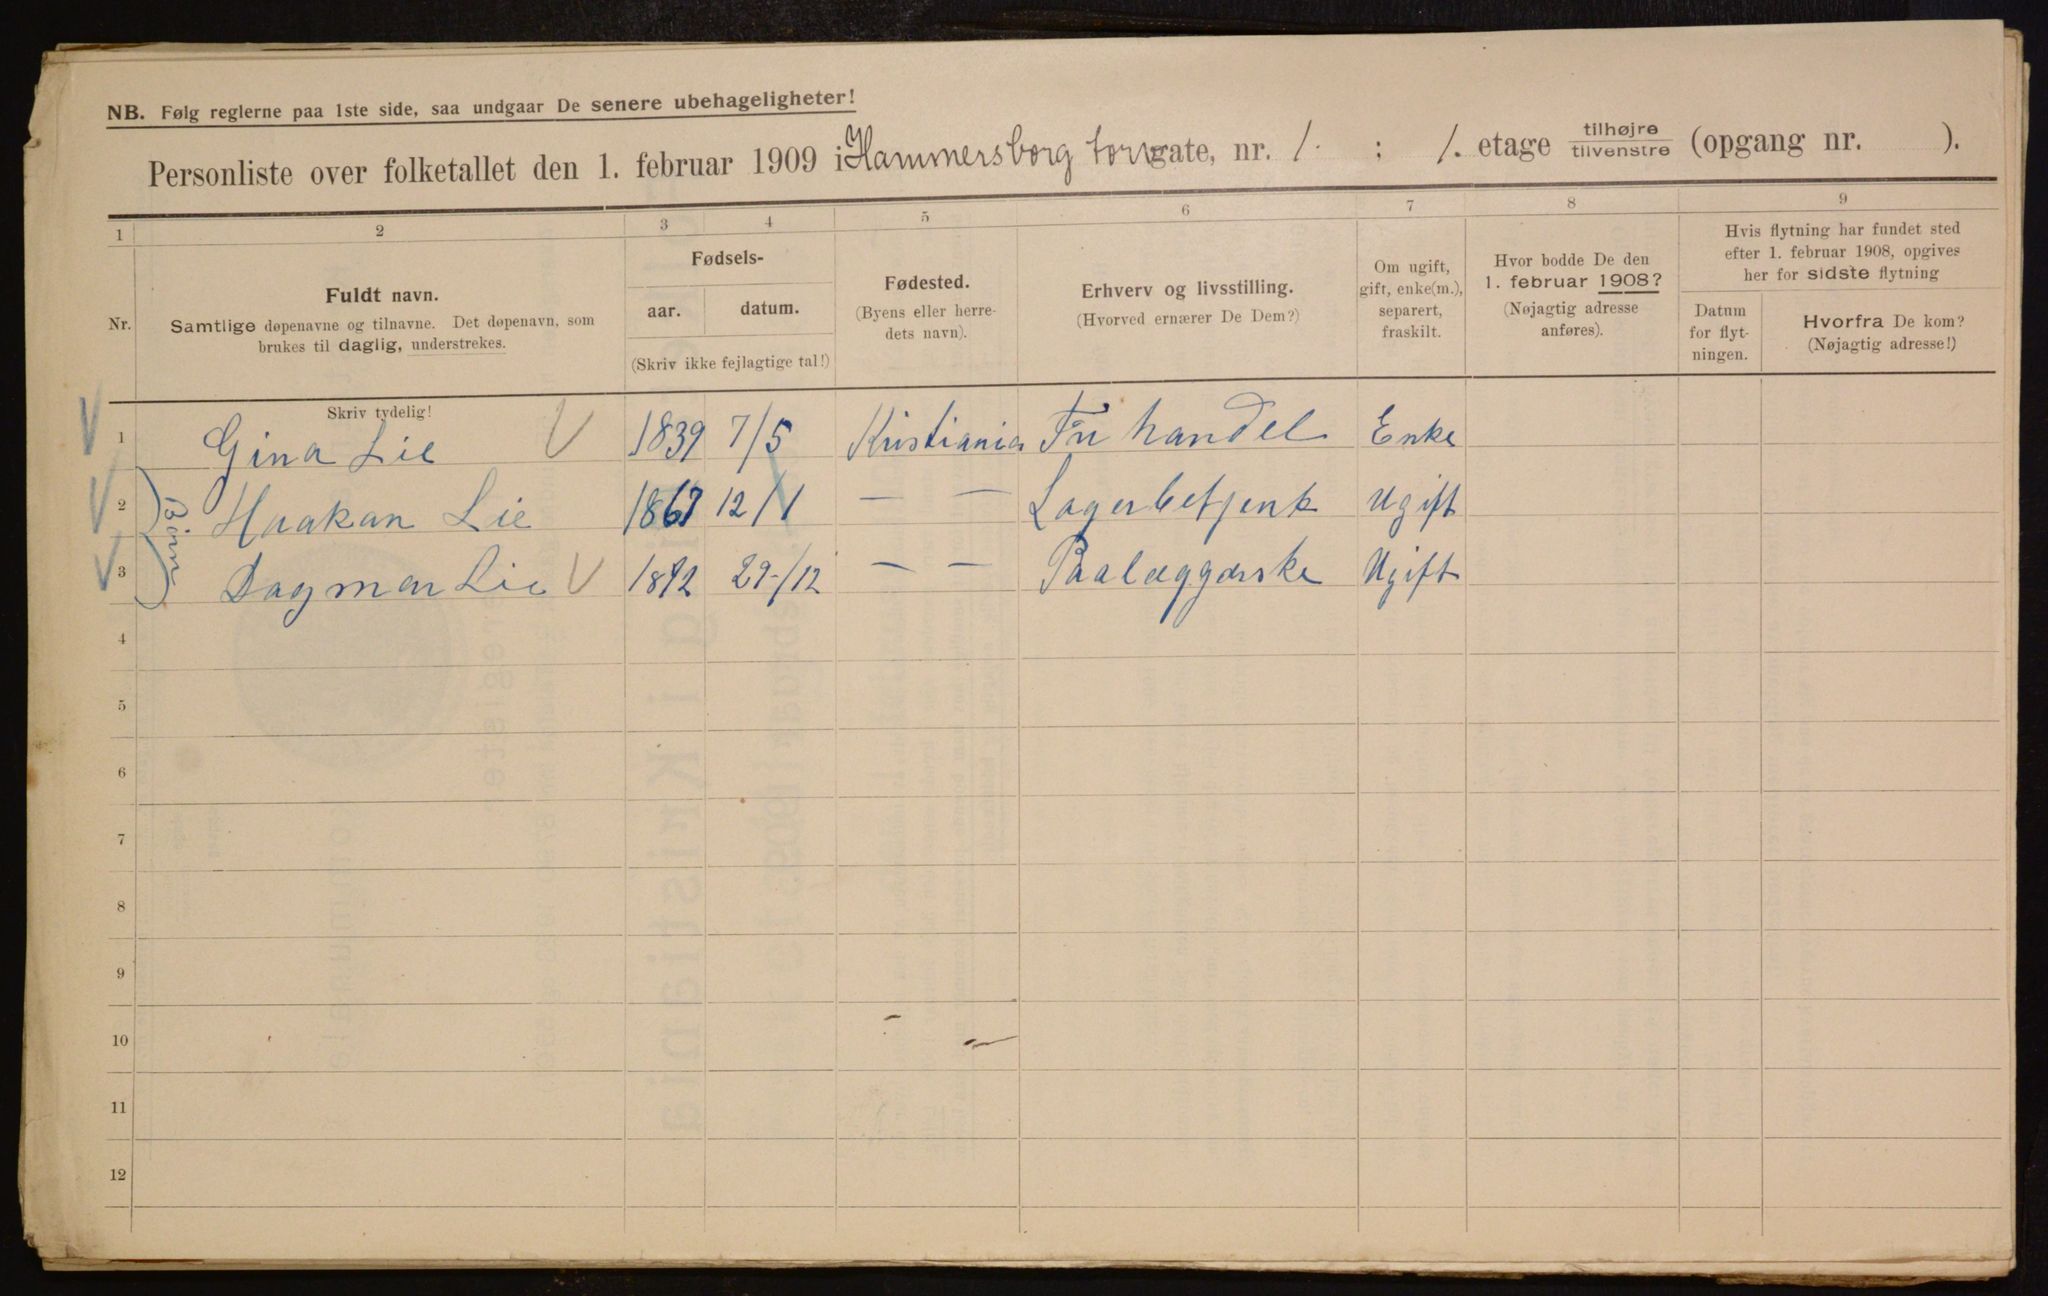 NB. Følg reglerne paa 1ste side, saa undgaar De senere ubehageligheter!
Personliste over folketallet den 1. februar 1909 i Hammersborg torv gate, nr. 1. ; 1. etage tilhøjre tilvenstre (opgang nr. ).
1 2 3 4 5 6 7 8 9
Nr.
Fuldt navn.
Samtlige døpenavne og tilnavne. Det døpenavn, som
brukes til daglig, understrekes.
Skriv tydelig!
Fødsels-
aar. datum.
(Skriv ikke fejlagtige tal!)
Fødested.
(Byens eller herre-
dets navn).
Erhverv og livsstilling.
(Hvorved ernærer De Dem?)
Om ugift,
gift, enke(m.),
separert,
fraskilt.
Hvor bodde De den
1. februar 1908?
(Nøjagtig adresse
anføres).
Hvis flytning har fundet sted
efter 1. februar 1908, opgives
her for sidste flytning
Datum
for flyt-
ningen.
Hvorfra De kom?
(Nøjagtig adresse!)
1 Gina Lie V 1839 7/5 Kristiania handel Enke
2 Haakan Lie 1867 12/1 — — Lagerbetjent Ugift
Børn
3 Dagmar Lie V 1872 29-/12 — — Paalæggerske Ugift
4
5
6
7
8
9
10
11
12